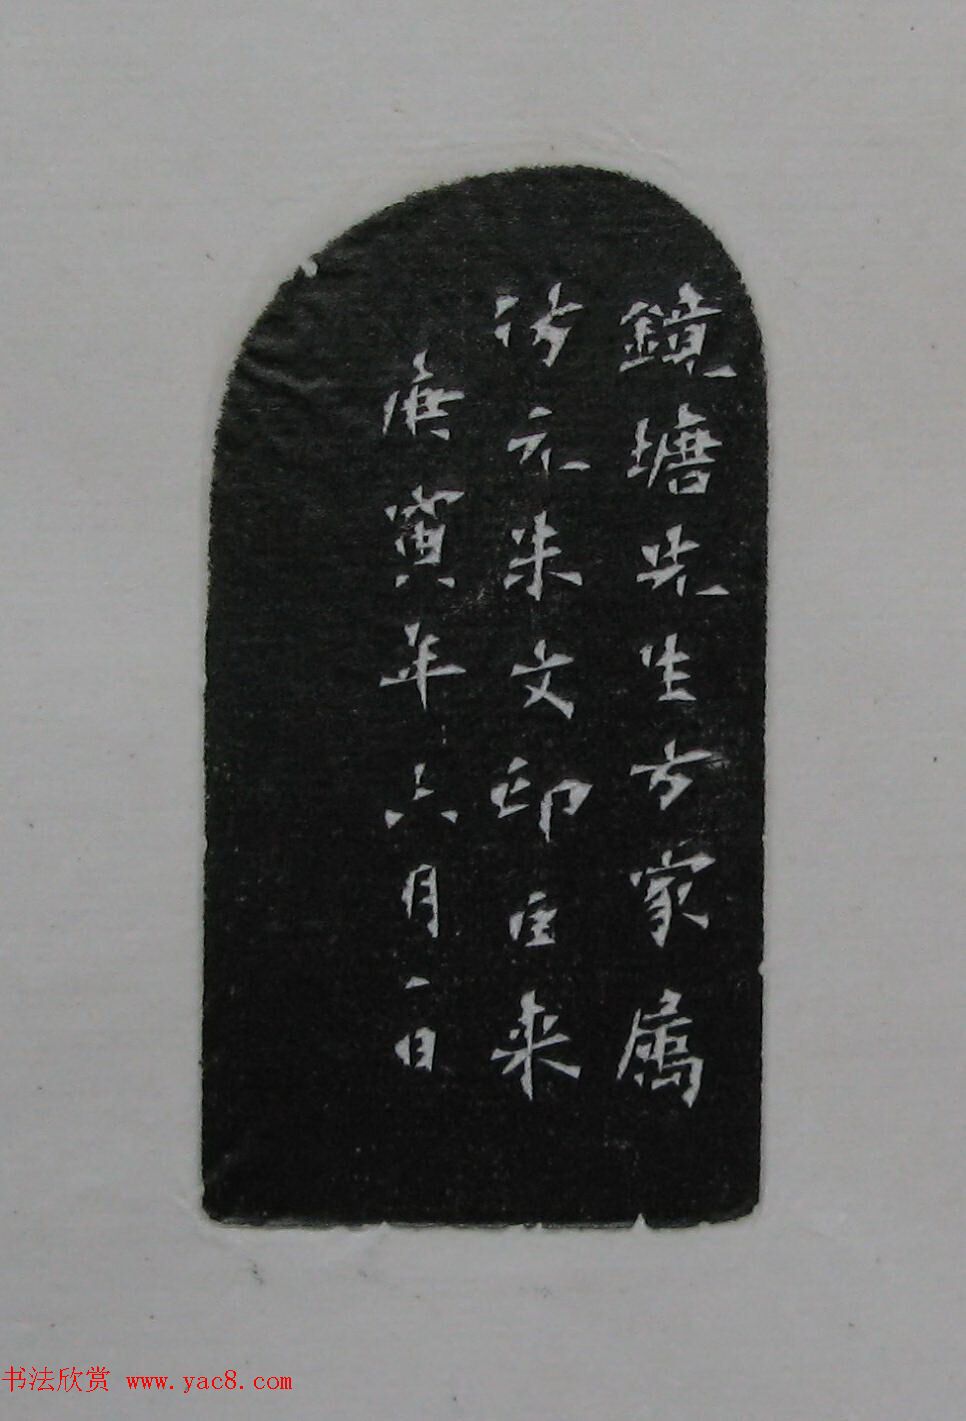 鏡塘先生方家属
仿元朱文印巨来
庚寅年六月一日
书法欣赏 www.yac8.com